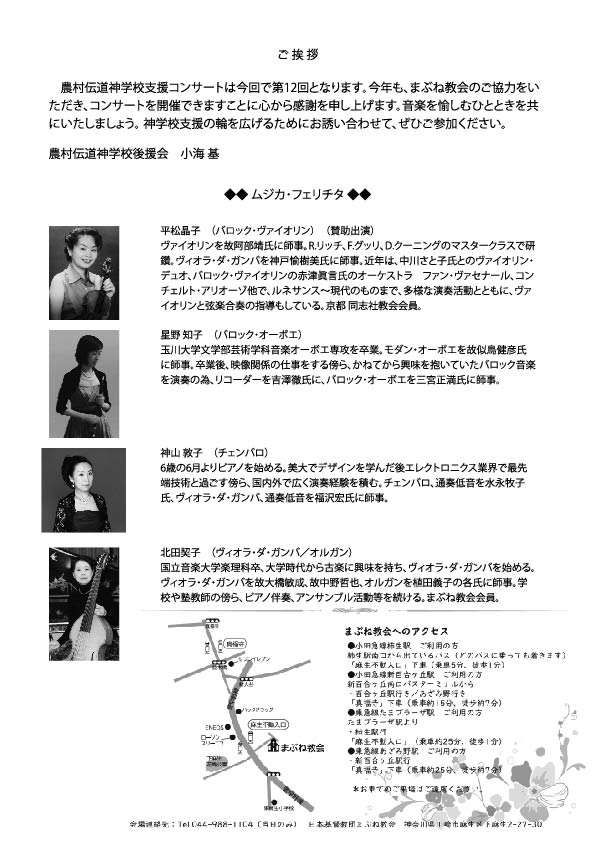 ご 挨 拶
農村伝道神学校支援コンサートは今回で第12回となります。今年も、まぶね教会のご協力をい
ただき、コンサートを開催できますことに心から感謝を申し上げます。音楽を愉しむひとときを共
にいたしましょう。神学校支援の輪を広げるためにお誘い合わせて、ぜひご参加ください。
農村伝道神学校後援会　小海 基
◆◆ ムジカ・フェリチタ ◆◆
平松晶子　（バロック・ヴァイオリン）　（賛助出演）
ヴァイオリンを故阿部靖氏に師事。R.リッチ、F.グッリ、D.クーニングのマスタークラスで研
鑽。ヴィオラ・ダ・ガンバを神戸愉樹美氏に師事。近年は、中川さと子氏とのヴァイオリン・
デュオ、バロック・ヴァイオリンの赤津眞言氏のオーケストラ　ファン・ヴァセナール、コン
チェルト・アリオーゾ他で、ルネサンス～現代のものまで、多様な演奏活動とともに、ヴァ
イオリンと弦楽合奏の指導もしている。京都 同志社教会会員。
星野 知子　（バロック・オーボエ）
玉川大学文学部芸術学科音楽オーボエ専攻を卒業。モダン・オーボエを故似鳥健彦氏
に師事。卒業後、映像関係の仕事をする傍ら、かねてから興味を抱いていたバロック音楽
を演奏の為、リコーダーを吉澤徹氏に、バロック・オーボエを三宮正満氏に師事。
神山 敦子　（チェンバロ）
6歳の6月よりピアノを始める。美大でデザインを学んだ後エレクトロニクス業界で最先
端技術と過ごす傍ら、国内外で広く演奏経験を積む。チェンバロ、通奏低音を水永牧子
氏、ヴィオラ・ダ・ガンバ、通奏低音を福沢宏氏に師事。
北田契子　（ヴィオラ・ダ・ガンバ／オルガン）
国立音楽大学楽理科卒、大学時代から古楽に興味を持ち、ヴィオラ・ダ・ガンバを始める。
ヴィオラ・ダ・ガンバを故大橋敏成、故中野哲也、オルガンを植田義子の各氏に師事。学
校や塾教師の傍ら、ピアノ伴奏、アンサンブル活動等を続ける。まぶね教会会員。
まぶね教会へのアクセス
●小田急線柿生駅　ご利用の方
柿生駅南口から出ているバス（どのバスに乗っても着きます）
「麻生不動入口」下車（乗車5分、徒歩1分）
●小田急線新百合ヶ丘駅　ご利用の方
新百合ヶ丘南口バスターミナルから
・百合ヶ丘駅行き／あざみ野行き
「真福寺」下車（乗車約15分、徒歩約7分）
●東急線たまプラーザ駅　ご利用の方
たまプラーザ駅より
・柿生駅行
「麻生不動入口」（乗車約25分、徒歩1分）
●東急線あざみ野駅　ご利用の方
・新百合ヶ丘駅行
「真福寺」下車（乗車約25分、徒歩約7分）
※お車でのご来場はご遠慮ください。
真福寺
セブンイレブン
ハックドラッグ
ENEOS
麻生不動入口
ローソン
まぶね教会
東柿生小学校
会場連絡先：Tel 044-988-1104（当日のみ）　日本基督教団まぶね教会　神奈川県川崎市麻生区下麻生2-27-30